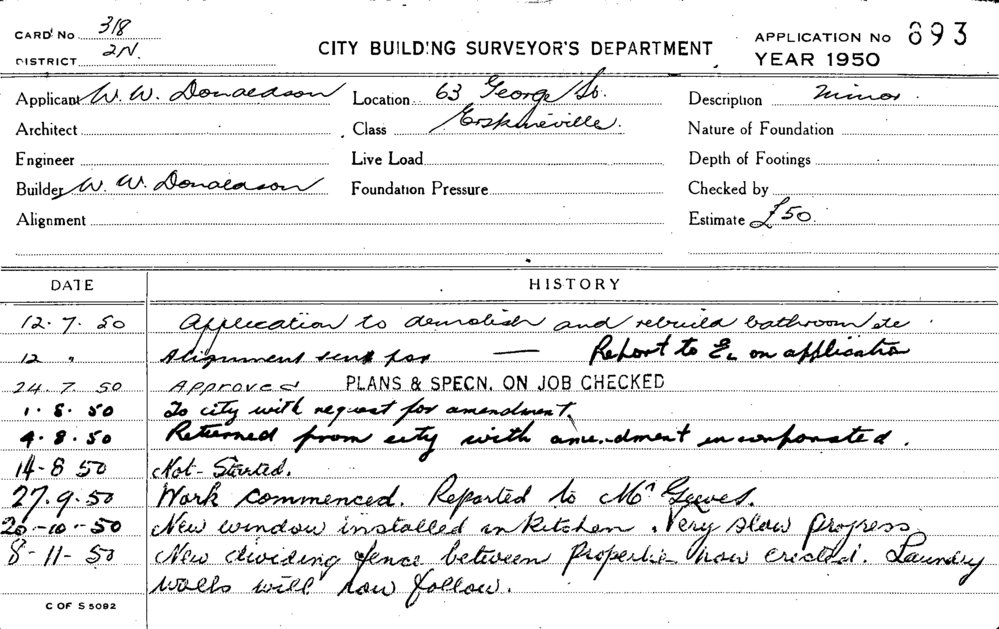 CARD No 318
DISTRICT 2N.
CITY BUILDING SURVEYOR'S DEPARTMENT
APPLICATION No 893
YEAR 1950
Applicant W. W. Donaldson
Location 63 George St.
Description Minor.
Architect
Class Erskineville.
Nature of Foundation
Engineer
Live Load
Depth of Footings
Builder W. W. Donaldson
Foundation Pressure
Checked by
Alignment
Estimate £50.
DATE HISTORY
12.7.50 Application to demolish and rebuild bathroom etc.
12 " Alignment sent for — Report to E. on application
24.7.50 Approved PLANS & SPECN. ON JOB CHECKED
1.8.50 To city with request for amendment.
4.8.50 Returned from city with amendment incorporated.
14-8 50 Not-Started.
27.9.50 Work commenced. Reported to Mr Geeves.
20-10-50 New window installed in Kitchen. Very slow progress
8-11-50 New dividing fence between properties now erected. Laundry
walls will now follow.
C OF S 5092